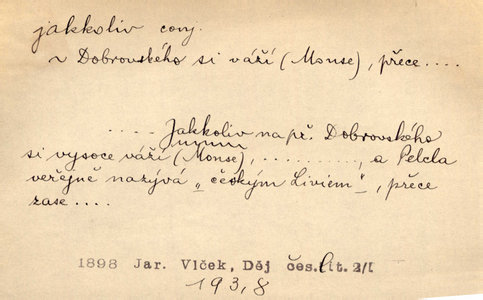 jakkoliv conj.
~ Dobrovského si váží (Monse), přece....
.... Jakkoliv např. Dobrovského
si vysoce váží (Monse), ........., a Pelcla
veřejně nazývá „českým Liviem“, přece
zase....
1898 Jar. Vlček, Děj čes. lit. 2/I
193,8